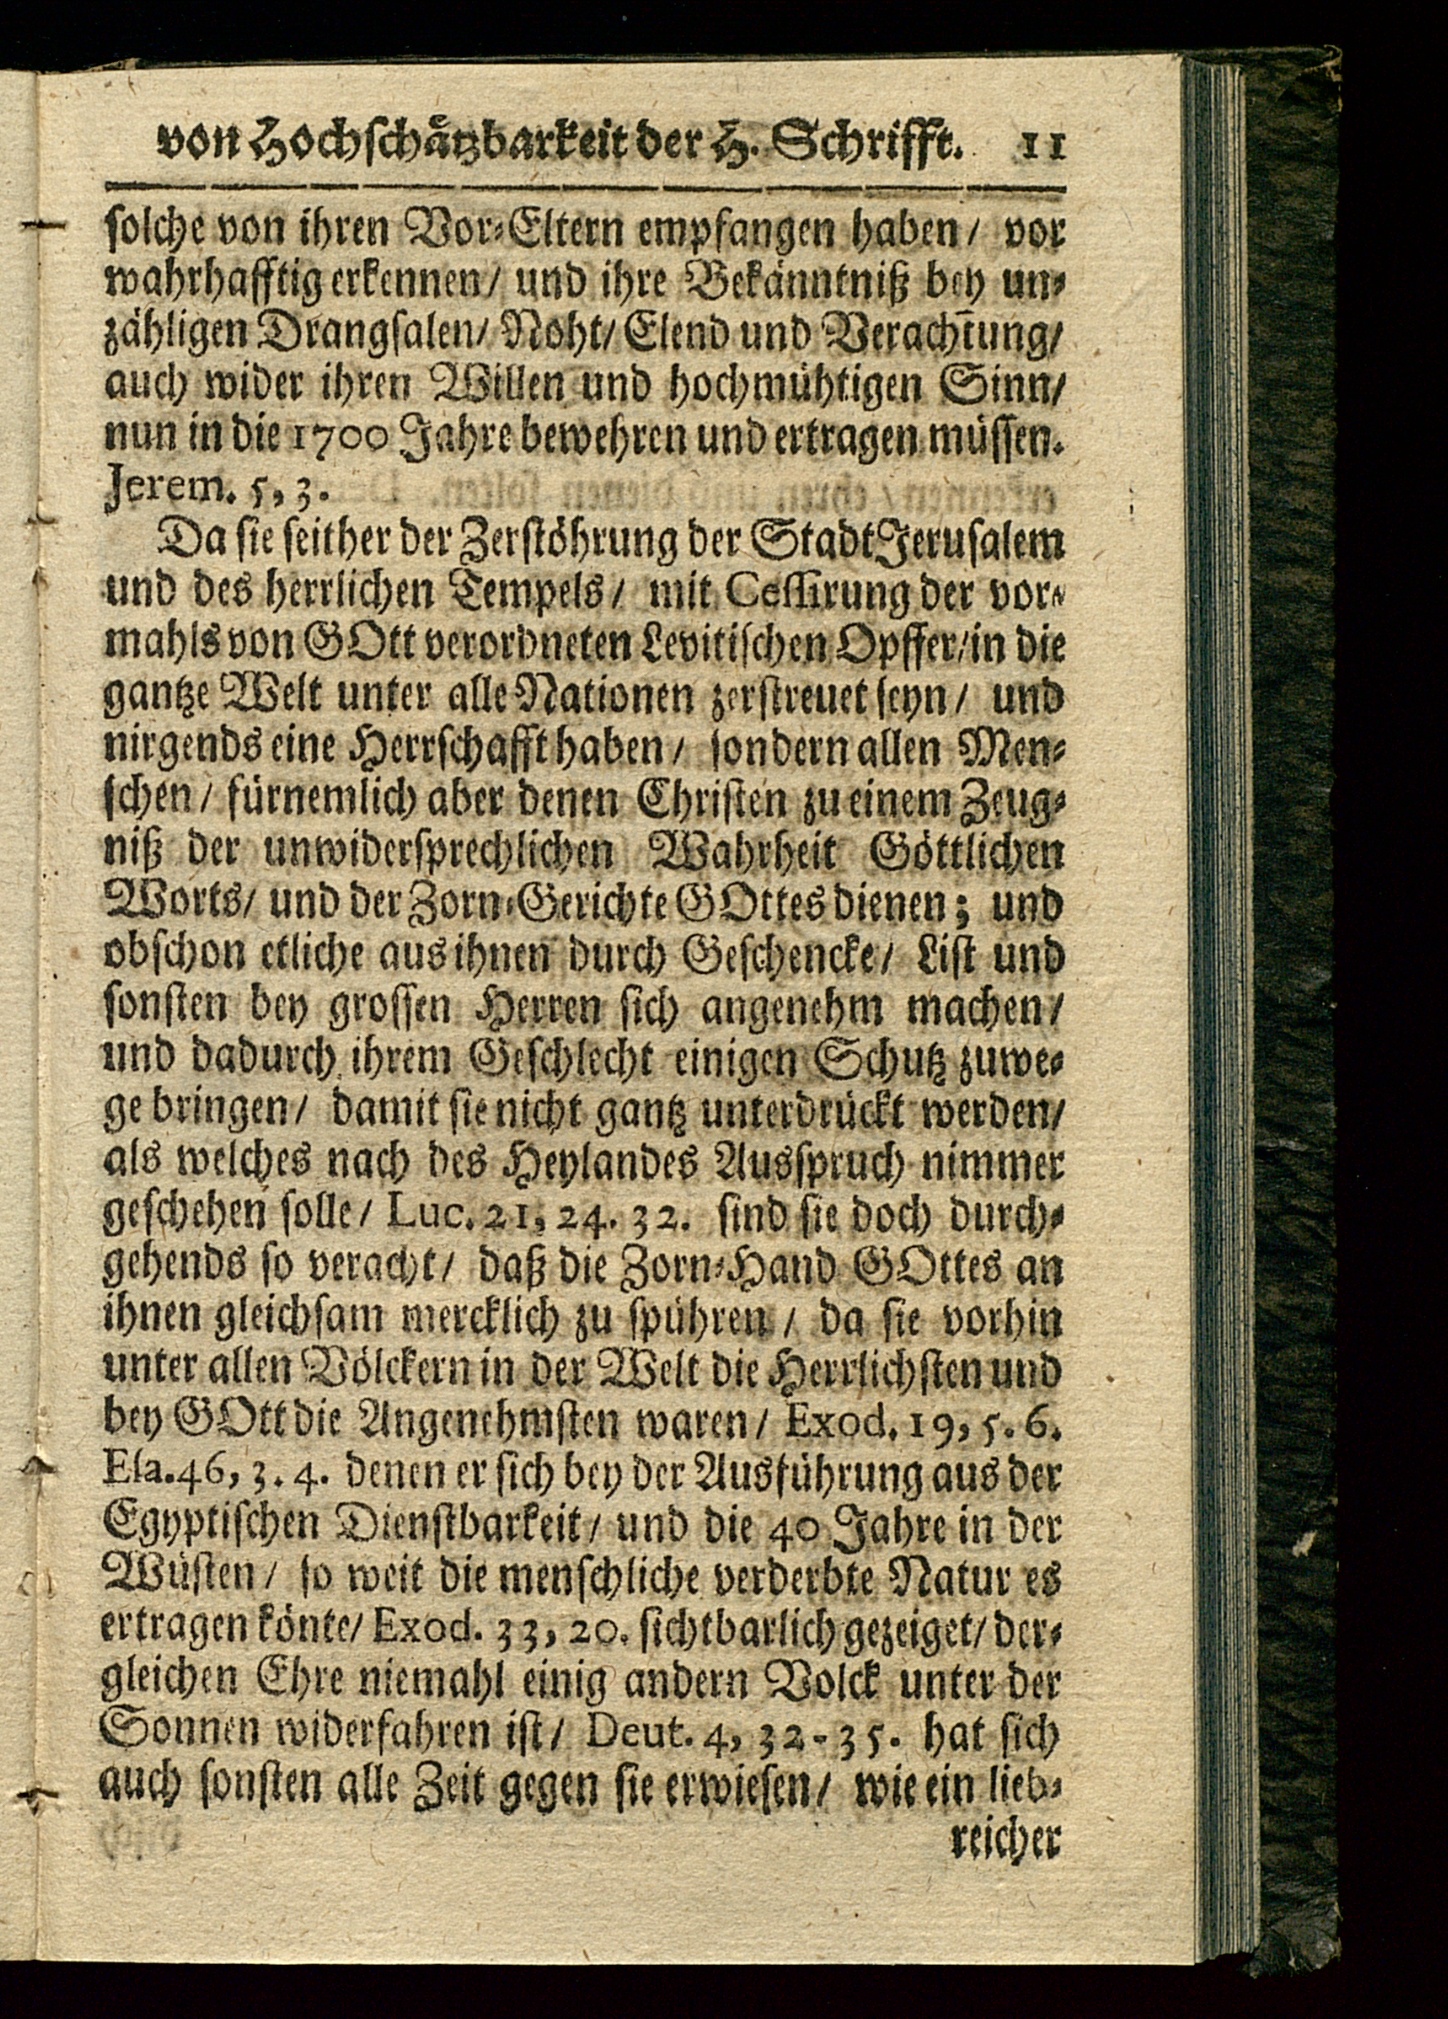 von Hochſchätzbarkeit der H. Schrifft. 11
ſolche von ihren Vor-Eltern empfangen haben/ vor
wahrhafftig erkennen/ und ihre Bekänntniß bey un-
zähligen Drangſalen/ Noht/ Elend und Verachtung/
auch wider ihren Willen und hochmühtigen Sinn/
nun in die 1700 Jahre bewehren und ertragen müſſen.
Jerem. 5, 3.
Da ſie ſeither der Zerſtöhrung der Stadt Jeruſalem
und des herrlichen Tempels/ mit Ceſſirung der vor-
mahls von GOtt verordneten Levitiſchen Opffer/ in die
gantze Welt unter alle Nationen zerſtreuet ſeyn/ und
nirgends eine Herrſchafft haben/ ſondern allen Men-
ſchen/ fürnemlich aber denen Chriſten zu einem Zeug-
niß der unwiderſprechlichen Wahrheit Göttlichen
Worts/ und der Zorn-Gerichte GOttes dienen; und
obſchon etliche aus ihnen durch Geſchencke/ Liſt und
ſonſten bey groſſen Herren ſich angenehm machen/
und dadurch ihrem Geſchlecht einigen Schutz zuwe-
ge bringen/ damit ſie nicht gantz unterdrückt werden/
als welches nach des Heylandes Ausſpruch nimmer
geſchehen ſolle/ Luc. 21, 24. 32. ſind ſie doch durch-
gehends ſo veracht/ daß die Zorn-Hand GOttes an
ihnen gleichſam mercklich zu ſpühren/ da ſie vorhin
unter allen Völckern in der Welt die Herrlichſten und
bey GOtt die Angenehmſten waren/ Exod. 19, 5. 6.
Eſa. 46, 3. 4. denen er ſich bey der Ausführung aus der
Egyptiſchen Dienſtbarkeit/ und die 40 Jahre in der
Wüſten/ ſo weit die menſchliche verderbte Natur es
ertragen könte/ Exod. 33, 20. ſichtbarlich gezeiget/ der-
gleichen Ehre niemahl einig andern Volck unter der
Sonnen widerfahren iſt/ Deut. 4, 32-35. hat ſich
auch ſonſten alle Zeit gegen ſie erwieſen/ wie ein lieb-
reicher